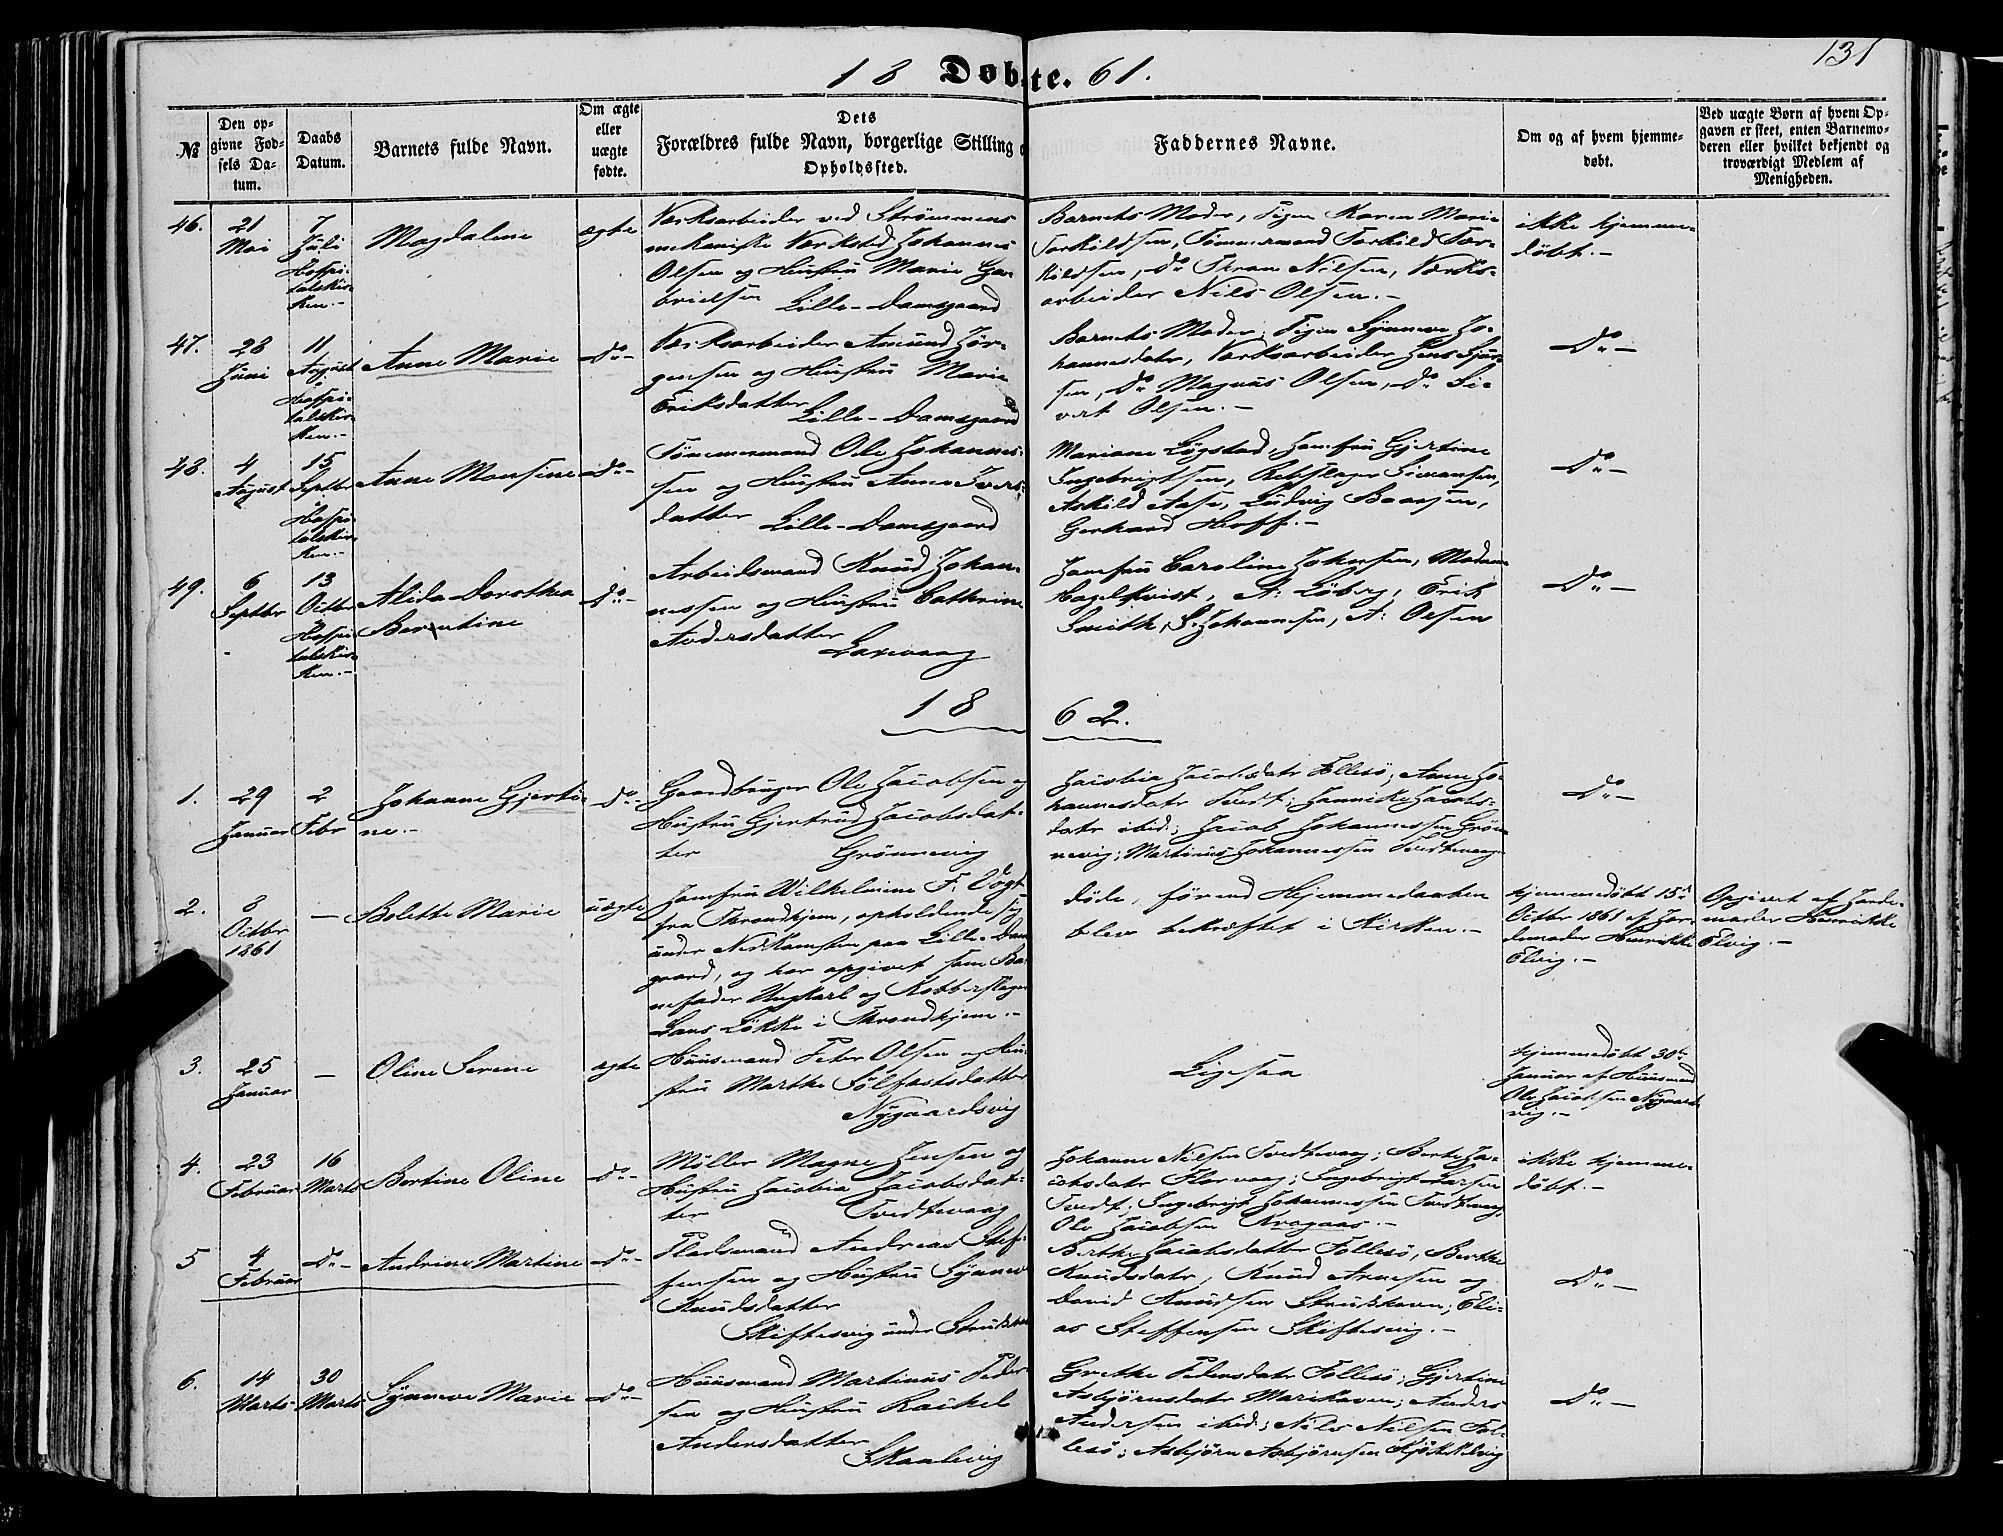 131
18 Døbte. 61.
№
Den opgivne Fødsels Datum.
Daabs Datum.
Barnets fulde Navn.
Om ægte eller uægte fødte.
Dets Forældres fulde Navn, borgerlige Stilling o
Opholdssted.
Faddernes Navne.
Om og af hvem hjemmedøbt.
Ved uægte Børn af hvem Opgaven er skeet, enten Barnemoderen eller hvilket bekjendt og troværdigt Medlem af Menigheden.
46.
21 Mai
7 Juli
Hospitalskirken.-
Magdalene
ægte
Værksarbeider ved Strømmens
mekaniske Værksted Johannes
Olsen og Hustru Marie Gabrielsen
Lille-Damsgaard
Barnets Moder, Pigen Karen Marie
Torkildsen, Tømmermand Torkild Torkildsen,
Do Nilsen, Værksarbeider Nils Olsen.-
ikke hjemmedøbt.-
47.
28 Juni
11 August
Hospitalskirken.-
Anne Marie
Do-
Værksarbeider Amund Jørgensen
og Hustru Marie
Eriksdatter Lille-Damsgaard
Barnets Moder; Pigen Synneve Johannesdatr,
Værksarbeider Jens
Do Magnus Olsen, Do Sivert Olsen.-
Do-
48.
4 August
15 Septbr
Hospitalskirken.-
Anne Monsine
Do-
Tømmermand Ole Johannessen
og Hustru Anna Iversdatter
Lille-Damsgaard
Mariane Løgstad, Jomfru Gjertine
Ingebrigtsen, Rebslager
Askild Aase, Ludvig
Gerhard Hoff.-
Do-
49.
6 Septbr
13 Octbr
Hospitalskirken.-
Alida Dorothea
Berentine
Do-
Arbeidsmand Knud Johannessen
og Hustru Cathrine
Andersdatter
Laxevaag
Jomfru Caroline Johnsen, Madam
Hagelkvist, A: Løberg, Erik
Smith, S. Johannesen, A: Olsen
Do-
18 62.
1.
29 Januar
2 Febr
Johanne Gjertine.-
Do-
Gaardbruger Ole Jacobsen og
Hustru Gjertrud Jacobsdatter
Grønnevig
Jacobia Jacobsdatr Follesø; Anne Johannesdatr
Tvedt; Hannike Jacobsdatr
ibid; Jacob Johannessen Grønnevig;
Martinus Johannessen Tvedtevaag
Do-
2.
8 Octbr 1861
-
Bolette Marie
uægte
Jomfru Wilhelmine F. Vogt
fra Throndhjem, opholdende sig
under Nedkomsten paa Lille-Damsgaard,
og har opgivet som Barnefader
Ungkarl og Kobberslager
Lars Løkke i Throndhjem.-
døde, førend Hjemmedaaben
blev bekræftet i Kirken.-
hjemmedøbt 15de
Octbr 1861 af Jordemoder
Henrikke
Elvig.-
Opgivet af Jordemoder
Henrikke
Elvig.-
3.
25 Januar
-
Oline Serine
ægte
Huusmand Peter Olsen og Hustru
Marthe Sølfæstsdatter
Nygaardsvig
Ligesaa
hjemmedøbt 30te
Januar af Huusmand
Ole Jacobsen Nygaardsvig.-
4.
23 Februar
16 Marts
Bertine Oline
Do-
Møller Magne Jensen og
Hustru Jacobia Jacobsdatter
Tvedtevaag
Johanne Nilsen Tvedtevaag; Berte Jacobsdatr
Florvaag; Ingebrigt Larsen
Tvedt; Ingebrigt Johannessen Tvedtevaag,
Ole Jacobsen Kragaas.-
ikke hjemmedøbt.-
5
4 Februar
Do-
Andrine Martine
Do-
Pladsmand Andreas Steffensen
og Hustru Synneve
Knudsdatter
Skiftesvig under Strudshavn
Berthe Jacobsdatter Follesø, Berthe
Knudsdatr, Knud Arnesen og
David Knudsen Strudshavn; Elias
Steffensen Skiftesvig.-
Do-
6.
14 Marts
30 Marts
Synneve Marie
Do-
Huusmand Martinus Pedersen
og Hustru Rachel
Andersdatter
Skaalevig
Grethe Pedersdatr Follesø; Gjertine
Asbjørnsdatr Marihaven; Anders
Andersen ibid; Nils Nilsen Follesø;
Asbjørn Asbjørnsen Kjøkkelvig
Do-